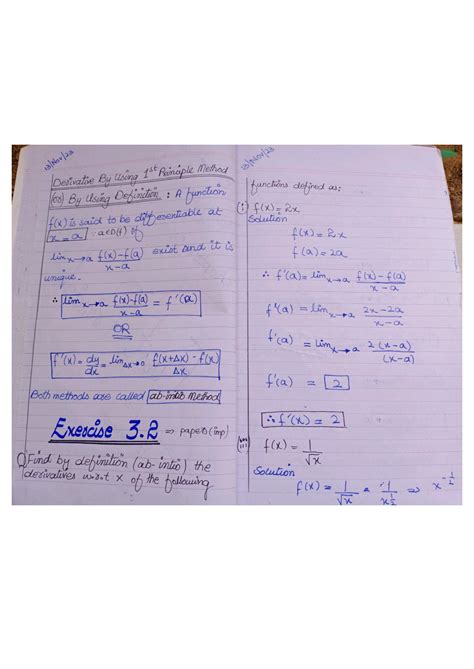 13/Nov/23
Derivative By Using 1st Principle Method
(OR) By Using Definition : A function
f(x) is said to be differentiable at
x = a : a∈D(f) if
lim x→a f(x)-f(a) / x-a exist and it is
unique.
∴ lim x→a f(x)-f(a) / x-a = f'(a)
OR
f'(x) = dy/dx = lim Δx→0 f(x+Δx) - f(x) / Δx
Both methods are called ab-intib Method
Exercise 3.2 ⇒ paper (imp)
Q Find by definition (ab-intio) the
derivatives w.r.t x of the following
13/Nov/23
functions defined as:
(i) f(x) = 2x
Solution
f(x) = 2x
f(a) = 2a
∴ f'(a) = lim x→a f(x) - f(a) / x-a
f'(a) = lim x→a 2x-2a / x-a
f'(a) = lim x→a 2(x-a) / (x-a)
f'(a) = 2
∴ f'(x) = 2
(iii) f(x) = 1/√x
Solution
f(x) = 1/√x = 1/x^1/2 ⇒ x^-1/2